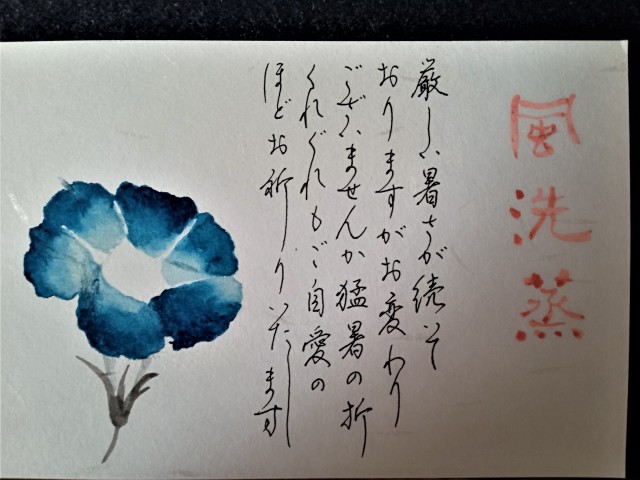 風洗蒸
厳しい暑さが続いて
おりますがお変わり
ございませんか猛暑の折
くれぐれもご自愛の
ほどお祈りいたします